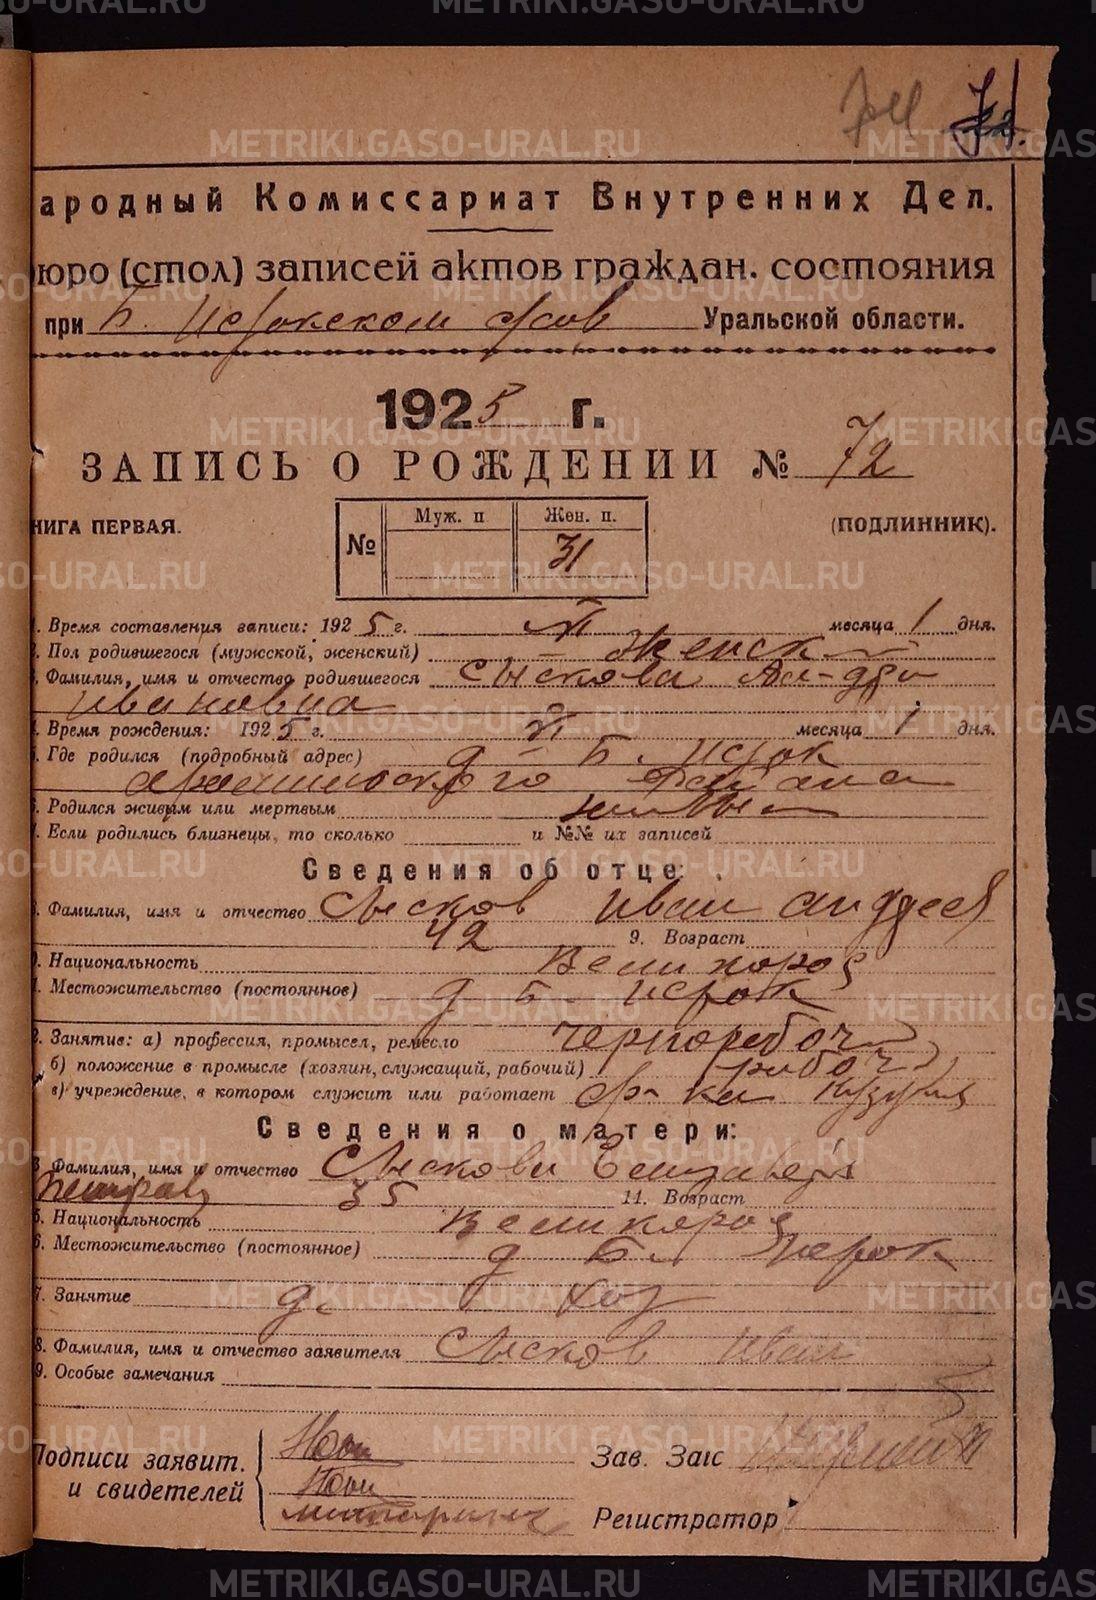 74 72.
ародный Комиссариат Внутренних Дел.
юро (стол) записей актов граждан. состояния
при Б. Истокском Уральской области.
1925 г.
ЗАПИСЬ О РОЖДЕНИИ № 72
НИГА ПЕРВАЯ. (ПОДЛИННИК).
№ Муж. п Жен. п.
31
1. Время составления записи: 1925 г. VI месяца 1 дня.
2. Пол родившегося (мужской, женский) Женск
3. Фамилия, имя и отчество родившегося Сыскова
Ивановна
4. Время рождения: 1925 г. VI месяца 1 дня.
5. Где родился (подробный адрес) д Б. Исток
Арамильского района
6. Родился живым или мертвым живым
7. Если родились близнецы, то сколько и №№ их записей
Сведения об отце:
8. Фамилия, имя и отчество Сысков Иван Андреев
42 9. Возраст
0. Национальность Великорос
1. Местожительство (постоянное) д Б. Исток
2. Занятие: а) профессия, промысел, ремесло чернорабоч
б) положение в промысле (хозяин, служащий, рабочий) рабоч
в) учреждение, в котором служит или работает ф-ка
Сведения о матери:
3 Фамилия, имя и отчество Сыскова Елизавета
Петров 35 14. Возраст
5. Национальность Великорос
6. Местожительство (постоянное) д Б. Исток
7. Занятие д. хоз
8. Фамилия, имя и отчество заявителя Сысков Иван
9. Особые замечания
Подписи заявит. Зав. Загс
и свидетелей
Регистратор